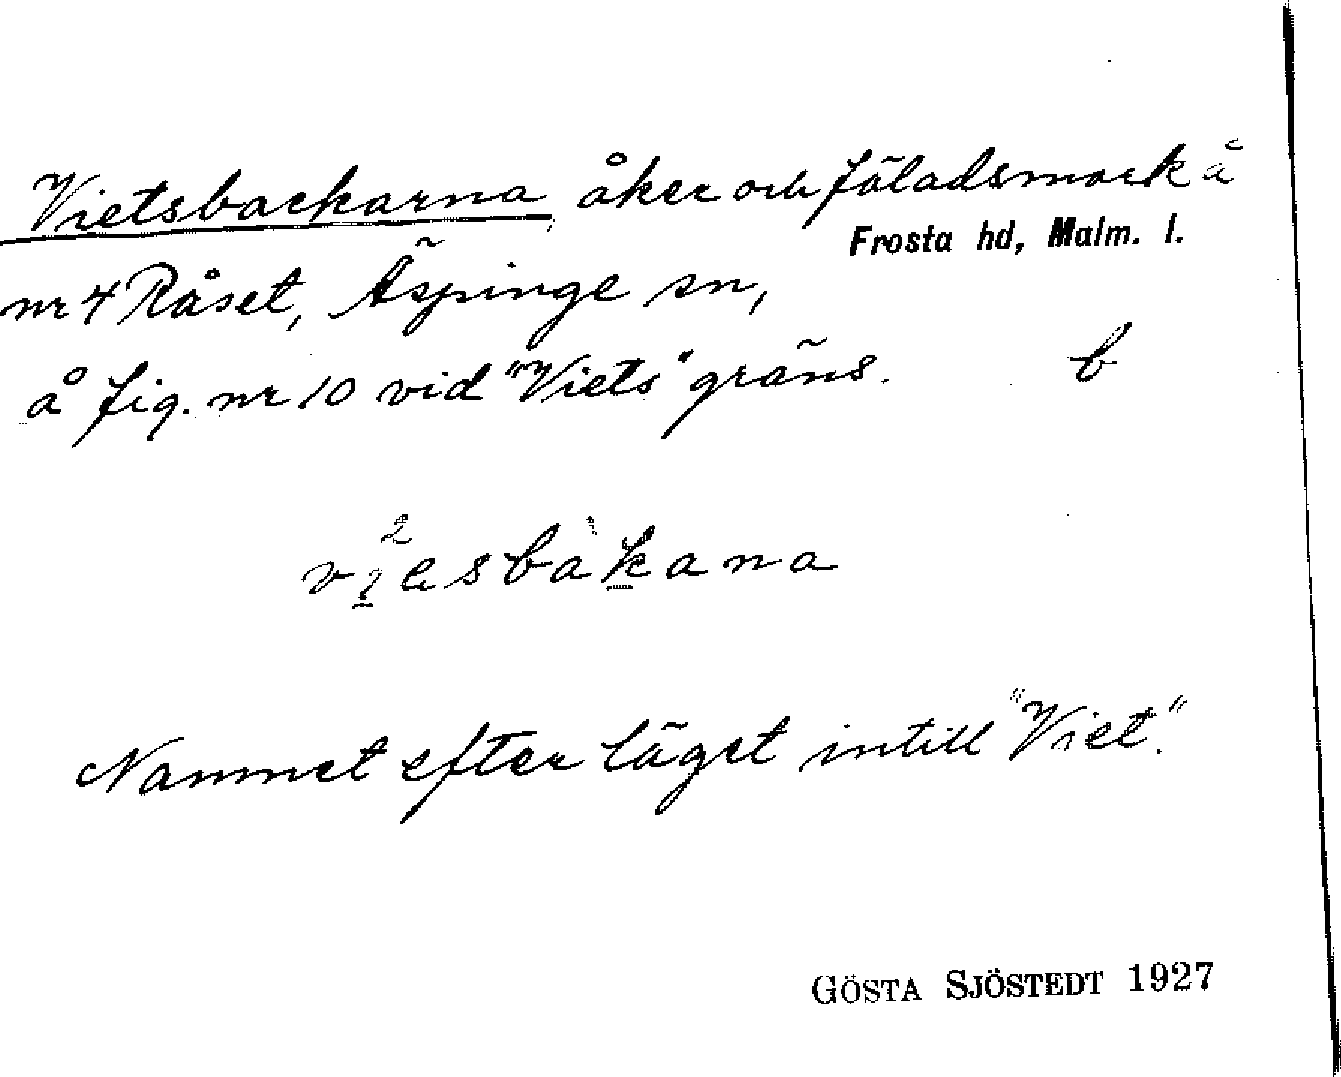 Vietsbackarna, åker och fäladsmark å
Frosta hd, Malm. l.
nr 4 Råset, Äspinge sn,
å fig. nr 10 vid "Viets" gräns. b
Namnet efter läget intill "Viet".
GÖSTA SJÖSTEDT 1927